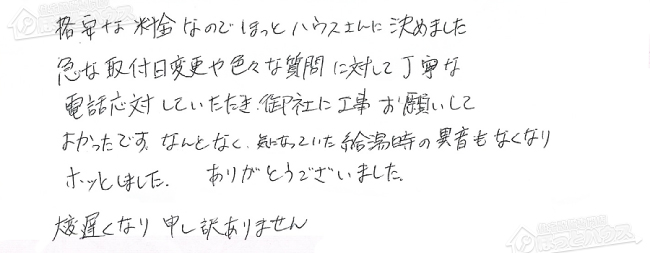 格安な料金なのでほっとハウスさんに決めました
急な取付日変更や色々な質問に対して丁寧な
電話応対していただき、御社に工事お願いして
よかったです。なんとなく、気になっていた給湯時の異音もなくなり
ホッとしました。 ありがとうございました。
大変遅くなり申し訳ありません